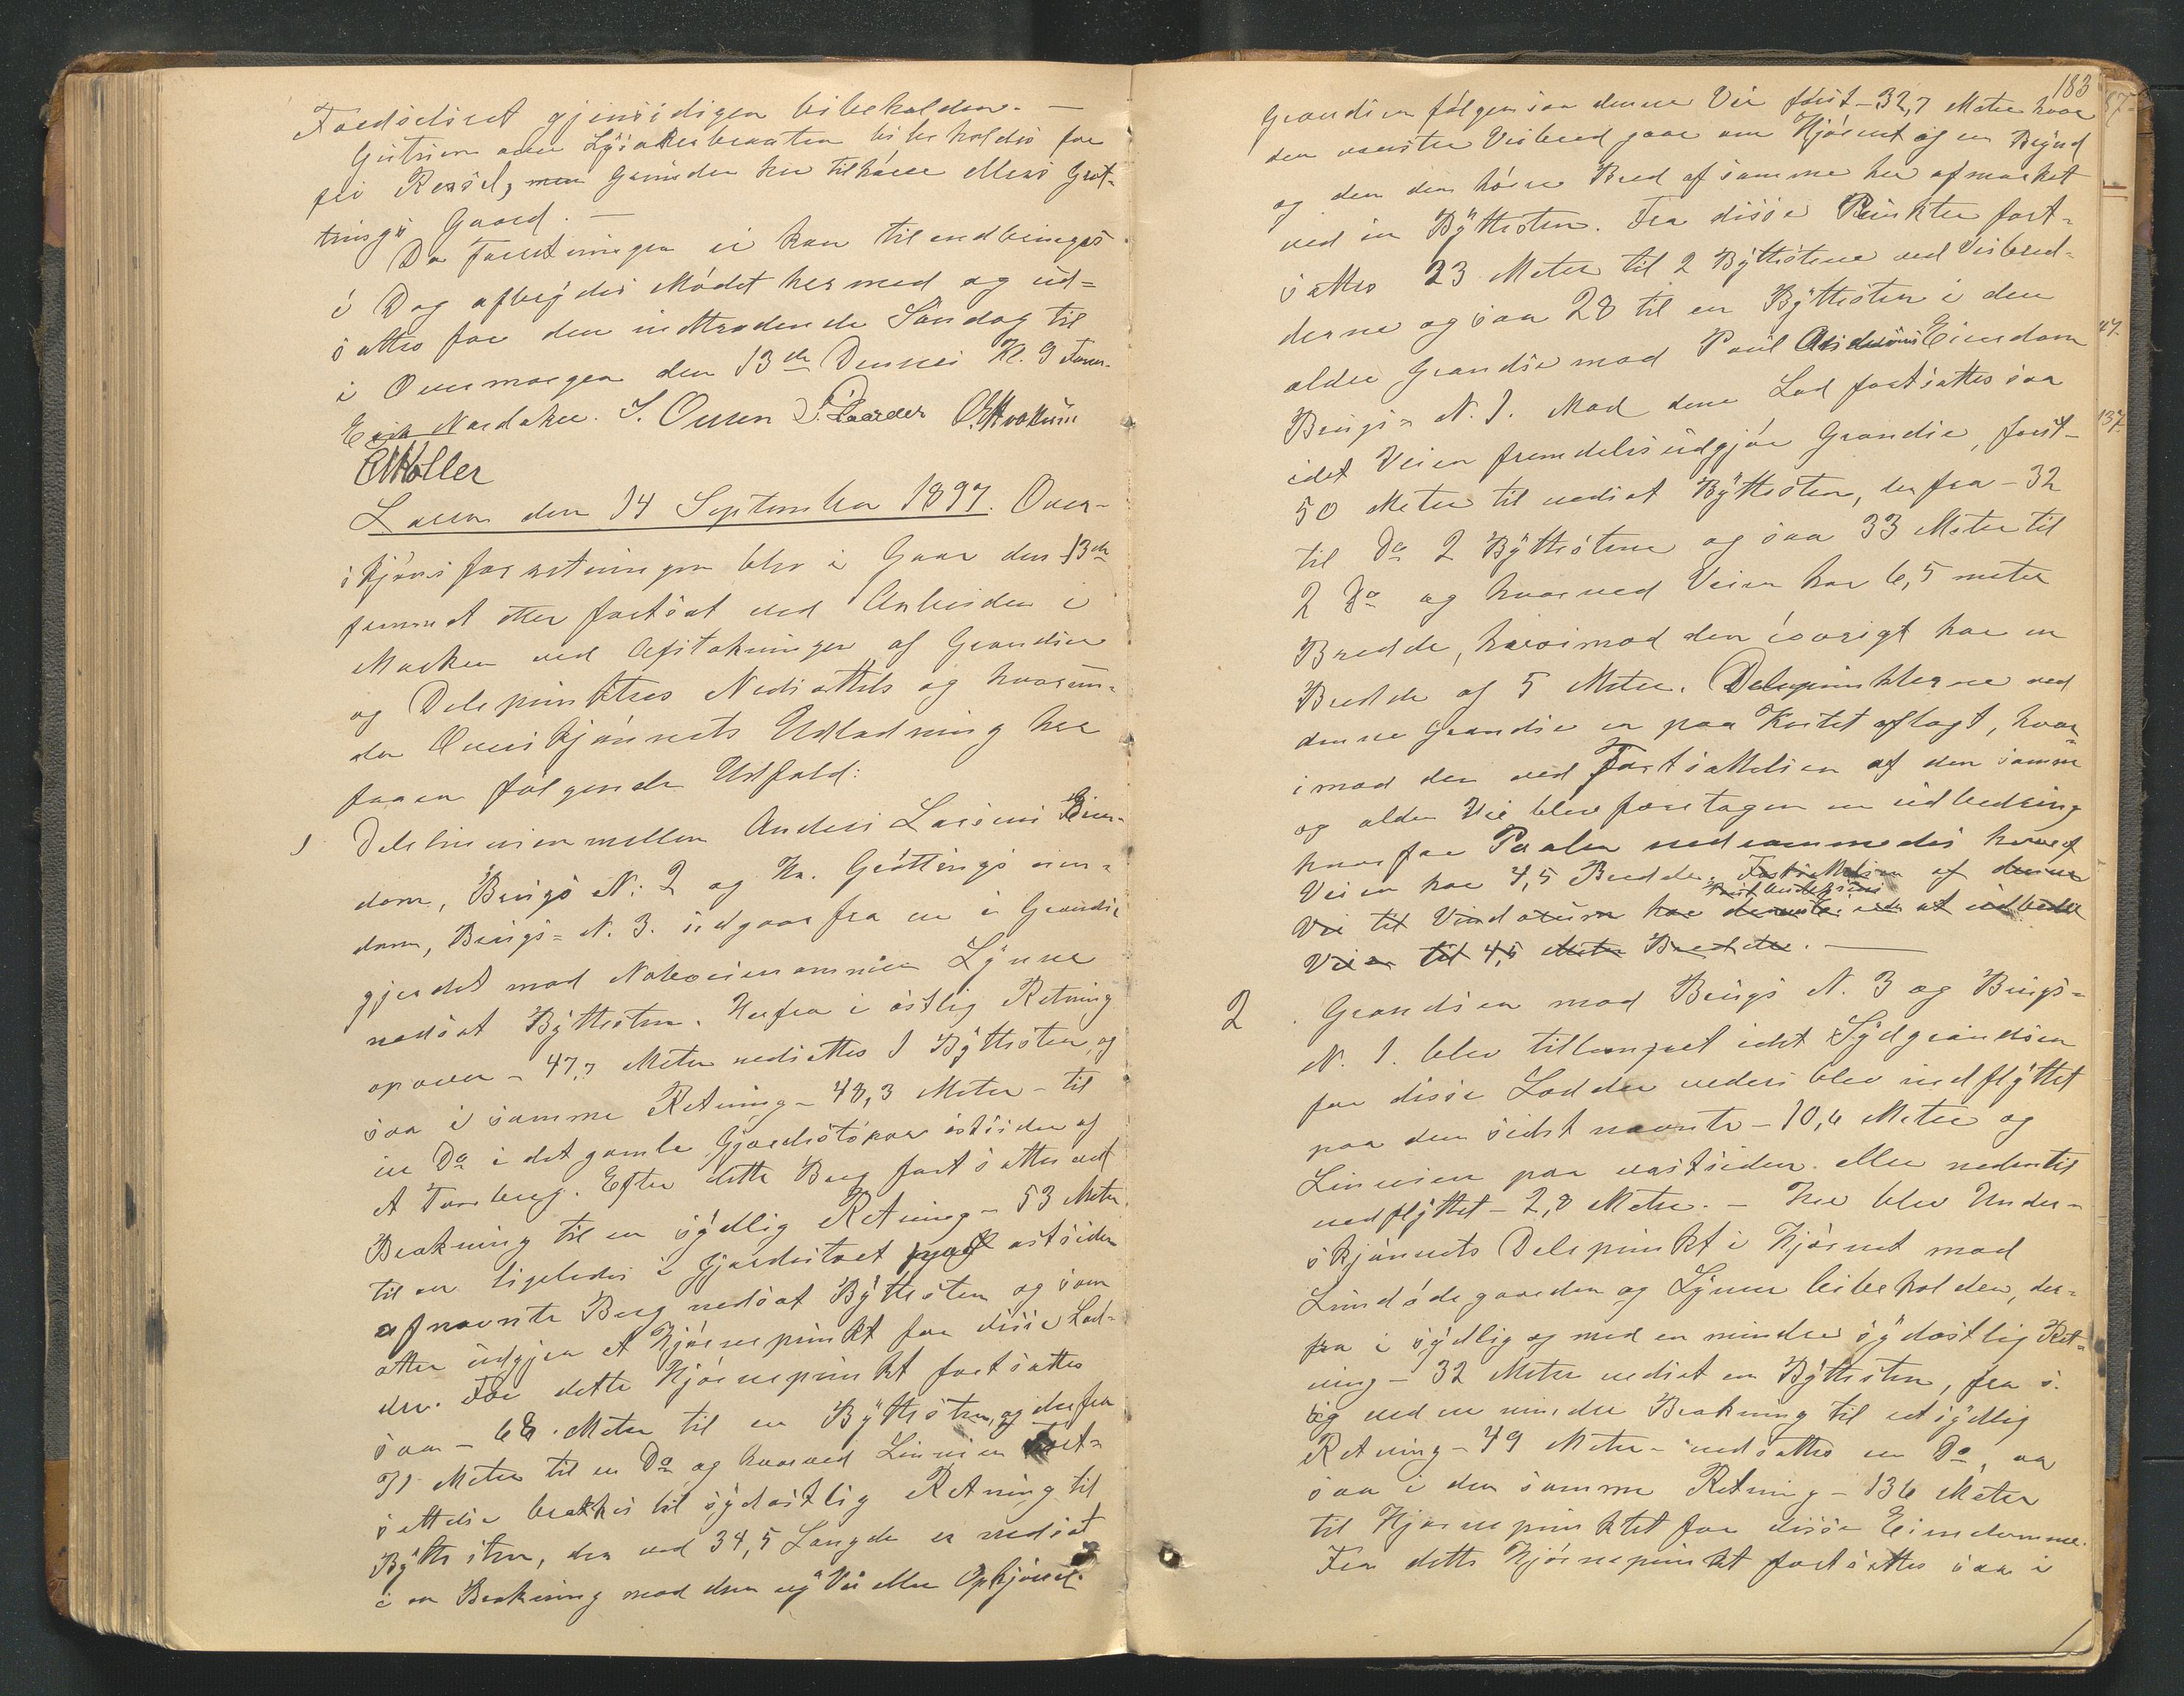 Færdselsret gjensidigen bibeholden. —
Gutuen over Lysakerbraaten bibeholdes for
fri Rersel, men Grunden her tilhører Mers Grøt=
tings Gaard. —
Da Forretningen ei kan tilendbringes
i Dag afbrydes Mødet hermed og ud=
sattes for den indtrædende Søndag til
i Overmorgen den 13de Dennes Kl. 9 Form.
Erik Nordaker. I. Ouren P. Laarder O. Kvaküm
EMoller
den 14 September 1897. Over-
skjønsforretningen blev i Gaar den 13de
fremmet etter fortsat ved Arbeiden i
Marken ved Afstakningen af Grændser
og Delepunkters Nedsættels og hvorun=
der Overskjønnets Udladning har
faaen følgende Udfald:
1 Delelinienien mellem Anders Larsens Eien=
dom, Brugs N: 2 og Kr. Grøttings eien=
dom, Brugs= N. 3. udgaar fra en i Grændse
gjerdet mod Naboeiendommen Lynne
nedsat Byttesten. Herfra i østlig Retning
opover - 47,7 Meter nedsattes 1 Byttesten, og
saa i samme Retning - 48,3 Meter - til
en Do i det gamle Gjærdestøkoa østsiden af
et Torvberg. Efter dette Berg fortsattes ved
Brækning til en sydlig Retning - 53 Meter
til en ligeledes i Gjærdestoet paa østsiden
af nævnte Berg nedsat Byttesten og som
atter udgjør et Hjørnepunkt for disse Lod=
der. Fra dette Hjørnepunkt fortsattes
saa - 68. Meter til en Byttesten, og derfra
71 Meter til en Do og hvorved Liniens Fort=
settelse brækkes til sydøstlig Retning til
Byttesten, der ved 34,5 Længde er nedsat
i en Brækning mod den ny Vei eller Opkjørsel.
183
Grændsen følgen saa denne Vei først - 32,7 Meter hvor
den venstre Veibred gaar om Hjørnet og en Beÿnd
og den den høire Bred af samme her afmærket
ved en Byttesten. Fra disse Punkter fort=
sattes 23 Meter til 2 Byttestene ved Veibred=
derne og saa 28 til en Byttesten i den
ældre Grændse mod Poul Eiendom
Brugs= N. 1. Mod dene Lod fortsattes saa
idet Veien fremdeles udgjør Grændse, først-
50 Meter til nedsat Byttesten, herfra - 32
til Do 2 Byttestene og saa 33 Meter til
2 Do og hvorved Veien har 6,5 meter
Bredde, hvorimod den iøvrigt har en
Bredde af 5 Meter. Delepunkterne ved
denne Grændse er paa Kartet aflagt, hvor=
imod der ved Fortsættelsen af den samme
og ælden Vei blev foretagen en udbedring
hvorfor Paalen nedrammedes hvoraf
Veien har 4,5 Bredde. Fortsættelsen af denne
Vei til Vindorum har at udbedre
Veien til 4,5 Meter Bredde. —
2 . Grændsen mod Brugs N. 3 og Brugs=
N. 1. blev tillempet idet Sydgrændsen
for disse Lodder veders blev indflyttet
paa den sidst nævnte - 10,6 Meter og
Linieien paa vestsiden. eller nedentil
nedflyttet - 2,8 Meter. - Her blev Under=
skjønnets Delepunkt i Hjørnet mod
Lundødegaarden og Lynne bibeholden, der=
fra i sydlig og med en mindre sydøstlig Ret=
ning - 32 Meter nedsat en Byttesten, fra s.
og ved en mindre Brækning til ret sydlig
Retning - 49 Meter - nedsattes en Do, og
saa i den samme Retning - 136 Meter
til Hjørnepunktet for disse Eiendomme.
Fra dette Hjørnepunkt fortsattes saa i
87.
47.
137.